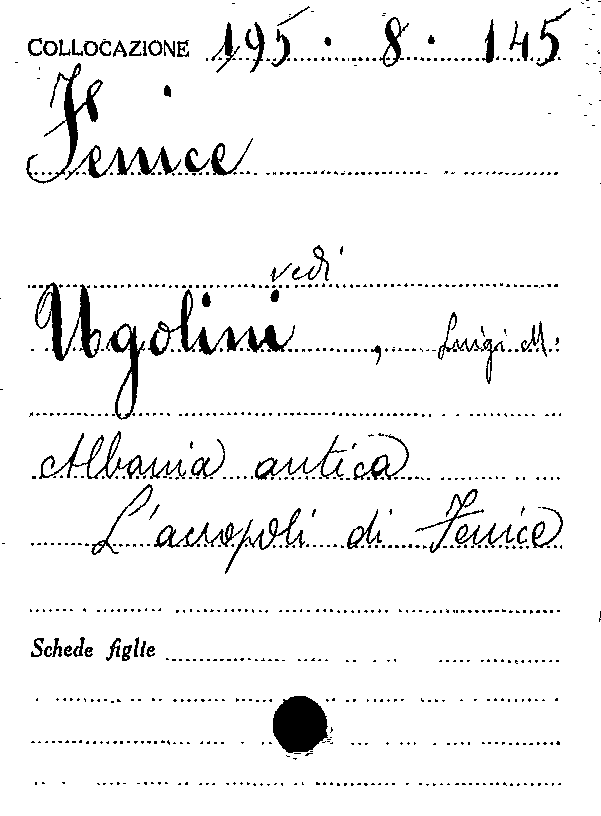 COLLOCAZIONE 195 · 8 · 145
Fenice
vedi
Ugolini, Luigi M.
Albania antica
L'acropoli di Fenice
Schede figlie